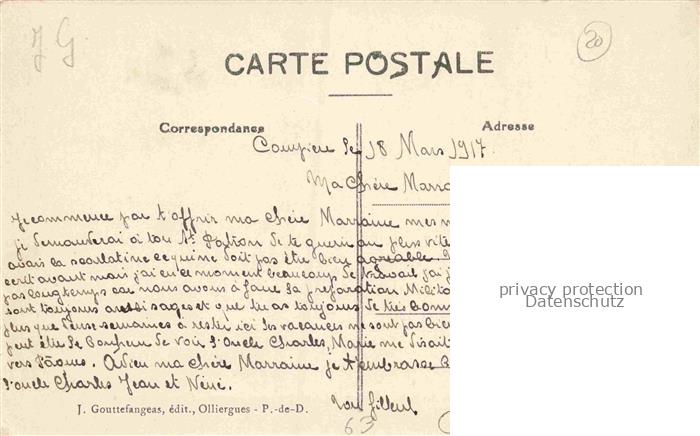 J G
20
CARTE POSTALE
Correspondance
Adresse
le 18 Mars 1917
Ma chère
Je commence par t'offrir ma chère Marraine mes
je demanderai à ton St Patron de te guérir au plus vite
avais la scarlatine ce qui ne doit pas être bien agréable
écrit avant mais j'ai en ce moment beaucoup de travail j'ai
pas longtemps car nous avons à faire la préparation
sont toujours aussi sages et que tu as toujours de très
plus que deux semaines à rester ici les vacances ne sont pas
peut être le Bonheur de voir l'oncle Charles, Marie me disait
vers Pâques. Adieu ma chère Marraine je t'embrasse
l'oncle Charles Jean et Néné.
Ton filleul
J. Gouttefangeas, édit., Olliergues - P.-de-D.
63
privacy protection
Datenschutz